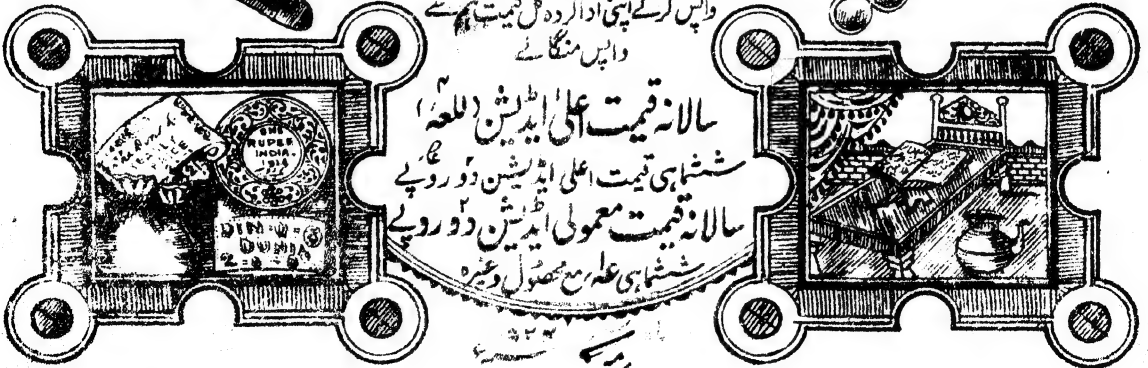 واپس کرکے اپنی ادا کردہ کل قیمت ہم سے
واپس منگائے
سالانہ قیمت اعلیٰ ایڈیشن (للعہ)
ششماہی قیمت اعلیٰ ایڈیشن دو روپے
سالانہ قیمت معمولی ایڈیشن دو روپے
ششماہی عہ مع محصول وغیرہ
ONE
RUPEE
INDIA
DIN-O-
DUNIA